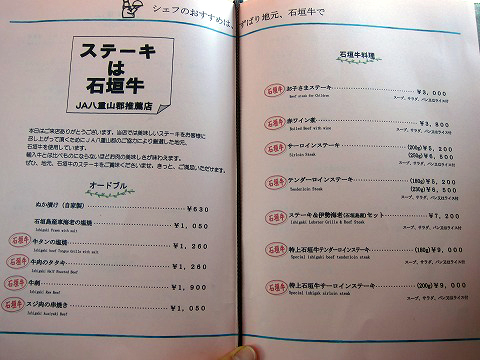 シェフのおすすめは、ずばり地元、石垣牛で
ステーキ
は
石垣牛
JA八重山郡推薦店
本日はご来店ありがとうございます。当店では美味しいステーキをお客様に
召し上がって頂くためにJA八重山郡のご協力により厳選した地元、
石垣牛を使用しています。
輸入牛とは比べものにならないほどお肉の美味しさが味わえます。
ぜひ、地元、石垣牛のステーキをご賞味くださいませ。きっと、ご満足いただけます。
オードブル
ぬか漬け (自家製) ¥630
石垣島産車海老の塩焼 ¥1,050
Ishigaki Prawn with salt
石垣牛 牛タンの塩焼 ¥1,260
Ishigaki beef Tongue Grille with salt
石垣牛 牛肉のタタキ ¥1,260
Ishigaki Half Roasted Beef
石垣牛 牛刺 ¥1,900
Ishigaki Raw Beef
石垣牛 スジ肉の串焼き ¥1,050
Ishigaki kusiyaki Beef
石垣牛料理
石垣牛 お子さまステーキ ¥3,000
Beef steak for Children
スープ、サラダ、パン又はライス付
石垣牛 赤ワイン煮 ¥3,800
Boiled Beef with wine
スープ、サラダ、パン又はライス付
石垣牛 サーロインステーキ (200g) ¥5,200
Sirloin Steak (250g) ¥6,500
スープ、サラダ、パン又はライス付
石垣牛 テンダーロインステーキ (180g) ¥5,200
Tenderloin Steak (230g) ¥6,500
スープ、サラダ、パン又はライス付
石垣牛 ステーキ&伊勢海老(石垣島産)セット ¥7,200
Ishigaki Lobster Grille & Beef Steak
スープ、サラダ、パン又はライス付
石垣牛 特上石垣牛テンダーロインステーキ (180g) ¥9,000
Special ishigaki beef tenderloin steak
スープ、サラダ、パン又はライス付
石垣牛 特上石垣牛サーロインステーキ (200g) ¥9,000
Special ishigaki sirloin steak
スープ、サラダ、パン又はライス付